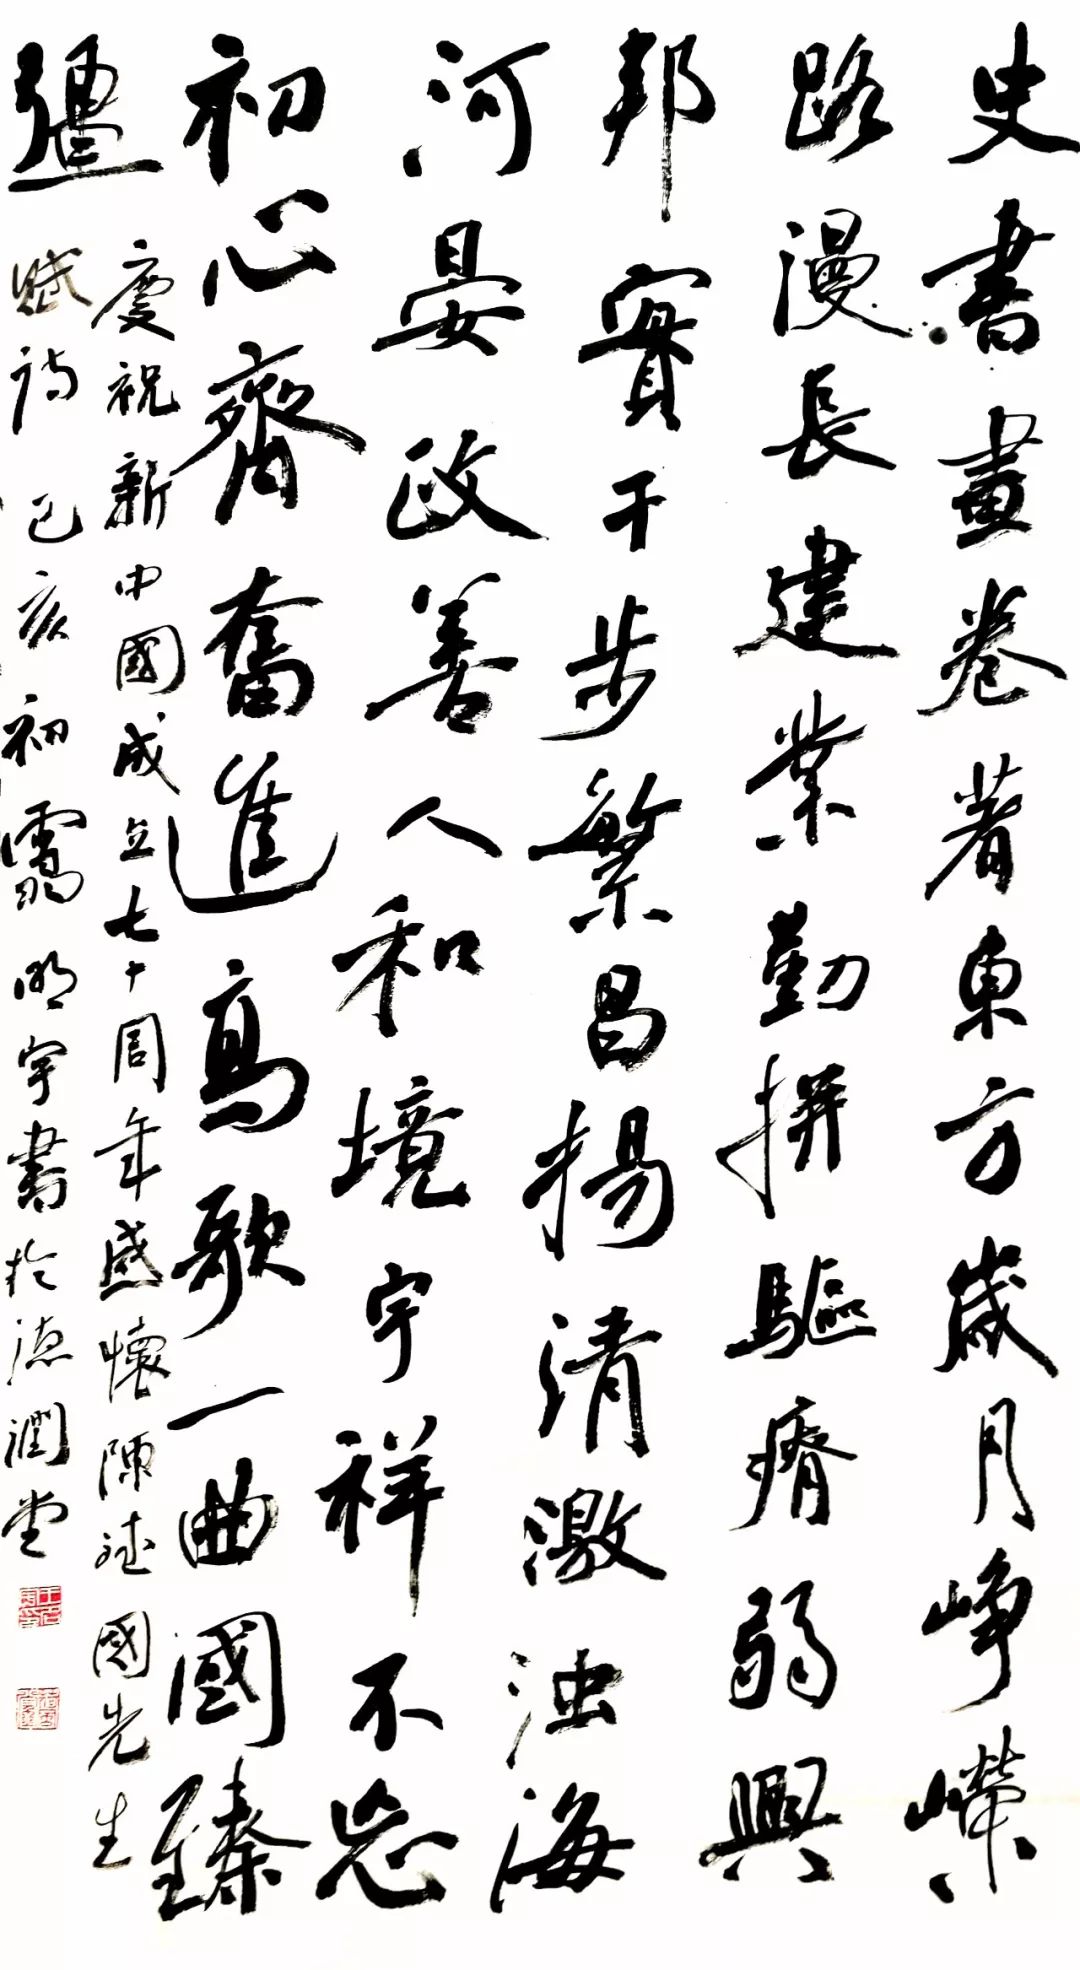 史書畫卷著東方歲月崢嶸
路漫長建業勤拼驅瘠弱興
邦實干步繁昌揚清激浊海
河晏政善人和境宇祥不忘
初心齊奮進高歌一曲國臻
彊
慶祝新中國成立七十周年感懷陳國先生
賦詩 己亥初 明宇書於德潤堂